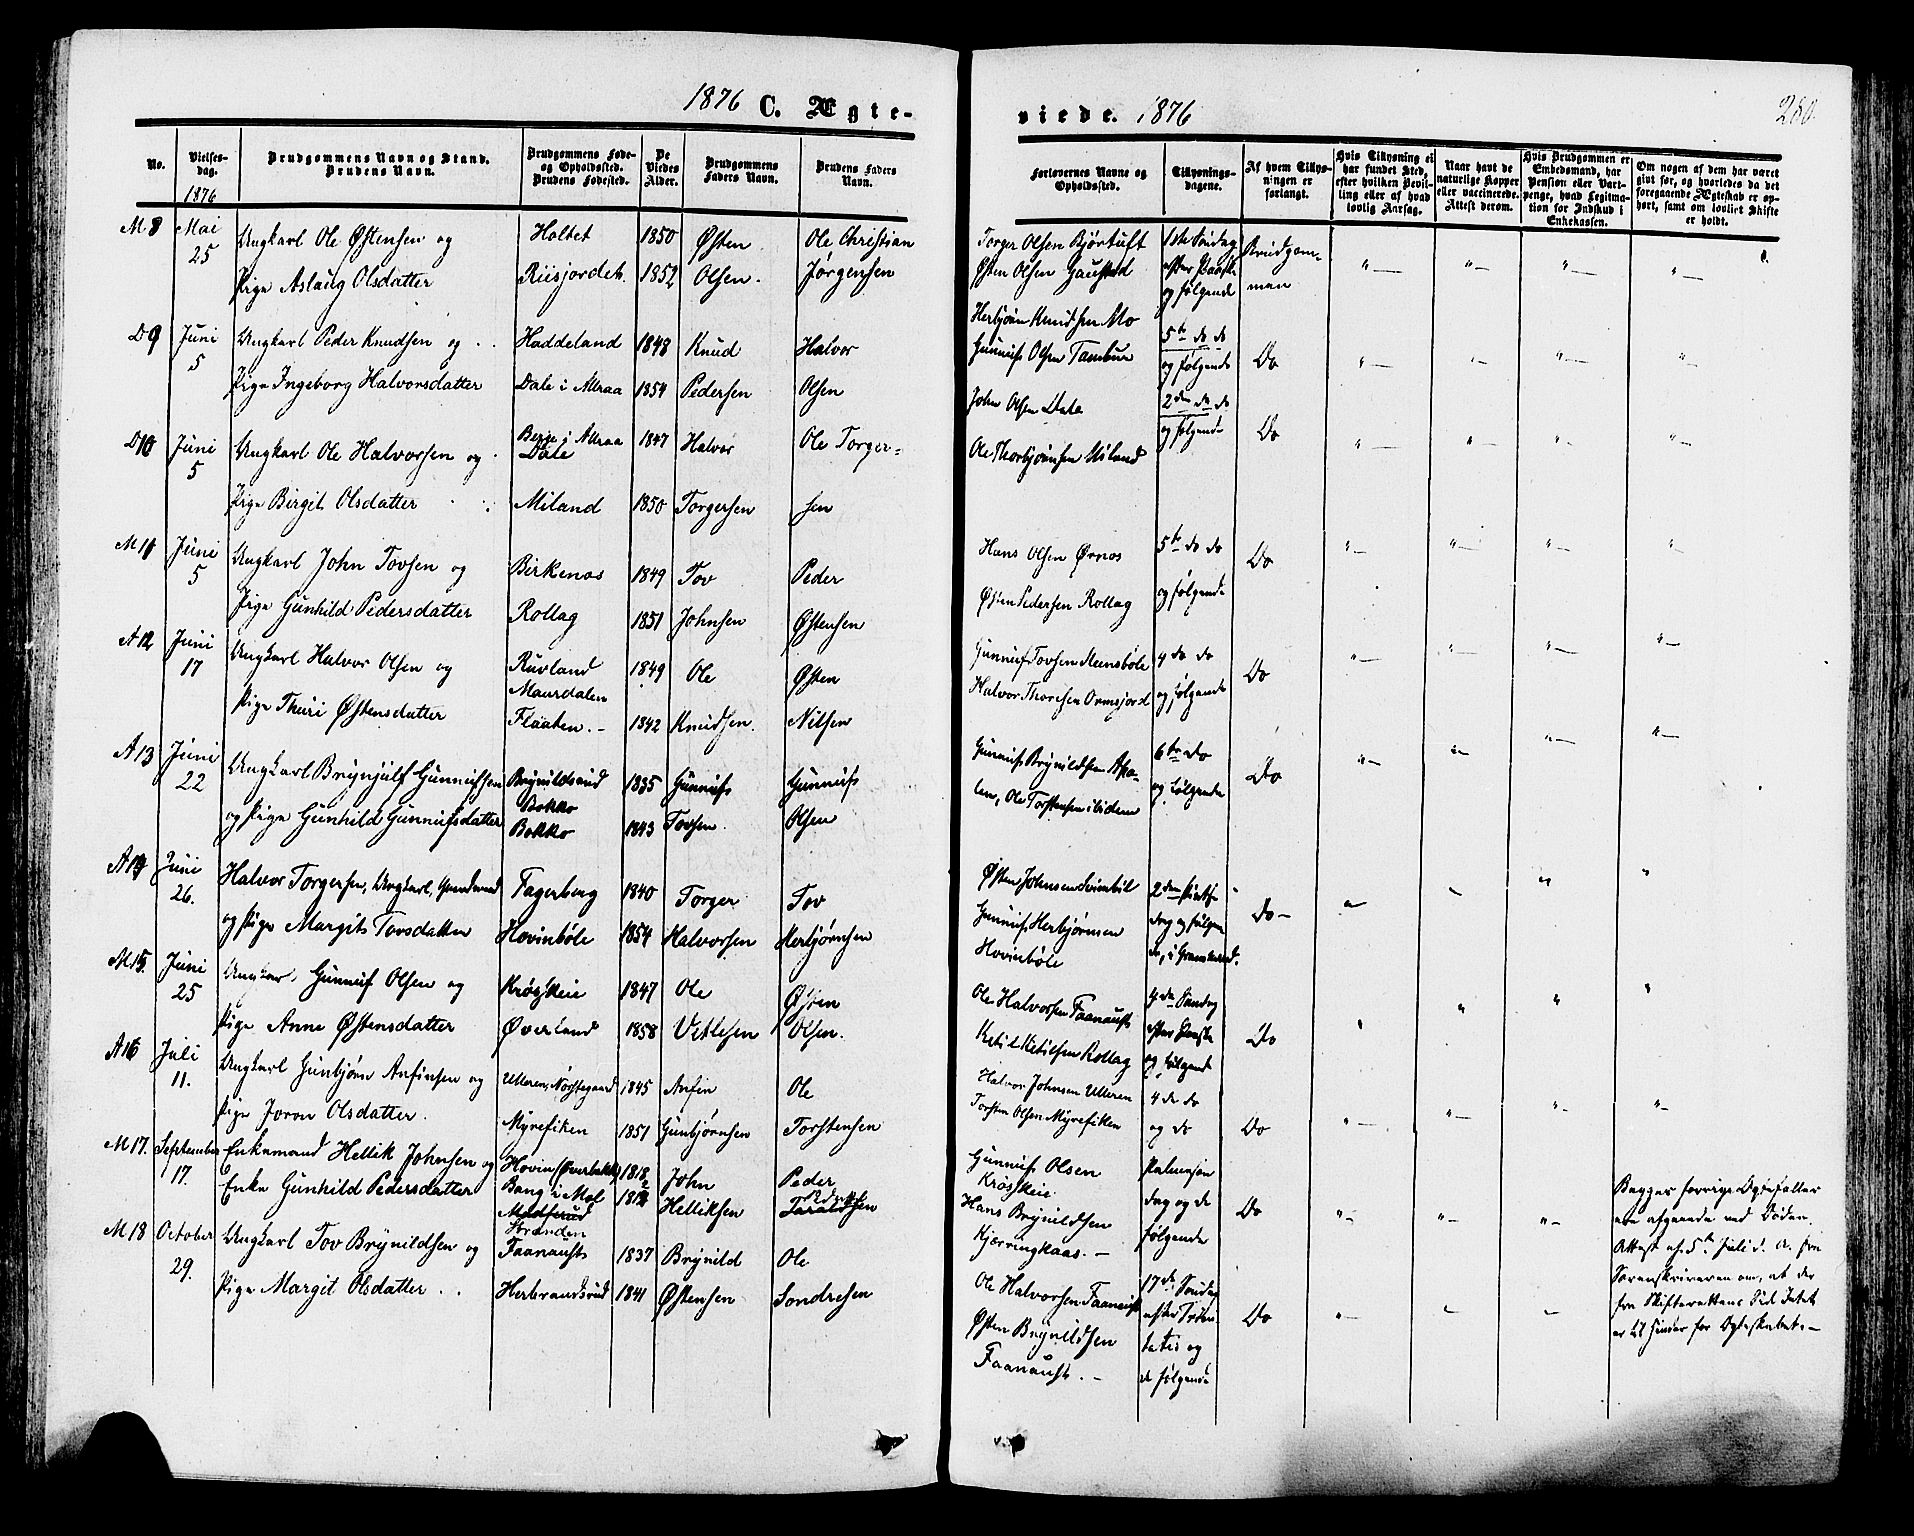 1876 C. Ægte-
No.
Vielses-
dag.
1876
Brudgommens Navn og Stand.
Brudens Navn.
Brudgommens Føde-
og Opholdssted.
Brudens Fødested.
De
Viedes
Alder.
Brudgommens
Faders Navn.
Brudens Faders
Navn.
M 8 Mai 25 Ungkarl Ole Østensen og Holtet 1850 Østen Ole Christian
Pige Aslaug Olsdatter Riisjordet 1852 Olsen. Jørgensen
D 9 Juni 5 Ungkarl Peder Knudsen og Haddeland 1848 Knud Halvor
Pige Ingeborg Halvorsdatter Dale i Attraa 1854 Pedersen Olsen
D 10 Juni 5 Ungkarl Ole Halvorsen og Berge i Attraa Dale 1847 Halvor Ole Torger-
Pige Birgit Olsdatter Miland 1850 Torgersen sen
M 11 Juni 5 Ungkarl John Tovsen og Birkenos 1849 Tov Peder
Pige Gunhild Pedersdatter Rollag 1851 Johnsen Østensen
A 12 Juni 17 Ungkarl Halvor Olsen og Ruvland Maurdalen 1849 Ole Østen
Pige Thuri Østensdatter Flaaten 1842 Knudsen. Nilsen
A 13 Juni 22 Ungkarl Brynjulf Gunnufsen Brynildsrud Bokko 1835 Gunnuf Gunnuf
og Pige Gunhild Gunnufsdatter Bokko 1843 Tovsen Olsen
A 14 Juni 26. Halvor Torgersen, Ungkarl, Fagerberg 1840 Torger Tov
og Pige Margit Tovsdatter Hovinbøle 1854 Halvorsen Herbjørnsen
M 15. Juni 25 Ungkar. Gunnuf Olsen og Krosskeie 1847 Ole Østen
Pige Anne Østensdatter Øverland 1858 Vetlesen Olsen.
A 16 Juli 11. Ungkarl Gunbjørn Anfinsen og Ulleren, Nørstegaard 1845 Anfin Ole
Pige Joron Olsdatter. Myrefiken 1851 Gunbjørnsen Torstensen
M 17. September 17. Enkemand Hellik Johnsen og Hovin (Øverbakk) 1818 John Peder
Enke Gunhild Pedersdatter Bang i Møl 1812 Helliksen
M 18 October 29. Ungkarl Tov Brynildsen og Stranden Faanaust 1837 Brynild Ole
Pige Margit Olsdatter Herbrandsrud 1841 Østensen Sondresen
viede. 1876
280.
Forlovernes Navne og
Opholdssted.
Tillysnings-
dagene.
Af hvem Tillys-
ningen er
forlangt.
Hvis Tillysning ei
har fundet Sted,
efter hvilken Bevil-
ling eller af hvad
lovlig Aarsag.
Naar havt de
naturlige Kopper
eller vaccinerede.
Attest derom.
Hvis Brudgommen er
Embedsmand, har
Pension eller Vart-
penge, hvad Legitima-
tion for Indskud i
Enkekassen.
Om nogen af dem har været
gift før, og hvorledes da det
foregaaende Ægteskab er op-
hørt, samt om lovligt Skifte
er holdt.
Torger Olsen Bjørtuft 1ste Søndag Brudgom-
Østen Olsen Gaustad efter Paaske og følgende man
Herbjørn Knudsen Mo 5te do do
Gunnuf Olsen Tambur og følgende Do
John Olsen Dale 2den do do
Ole Thorbjørnsen Miland og følgende Do
Hans Olsen Ørnos 5te do do Do
Østen Pedersen Rollag og følgende
Gunnuf Tovsen Steensbøle 4 do do Do
Halvor Thoresen Ormsjord og følgende
Gunnuf Brynildsen 6te do Do
Ole Torstensen ibidem og følgende
Østen Johnsen 2den Pintse- Do
Gunnuf Herbjørnsen dag og følgen
Hovinbøle
Ole Halvorsen Faanaust 4de Søndag Do
Ketil Ketilsen Rollag efter Paaske og følgende
Halvor Johnsen Ulleren 4 de do
Torsten Olsen Myrefiken og do Do
Gunnuf Olsen Krosskeie Palmesøn
Hans Brynildsen Kjerringkaas. dag og de følgende Do
Begges forrige Ægtefæller
ere afgaaede ved Døden.
Attest af 5te Juli d. A. fra
Sorenskriveren om, at der
fra Skifterettens Side Intet
er til Hinder for Ægteskabet.
Ole Halvorsen Faanaust 17de Søndag
Østen Brynildsen efter Trini Do
Faanaust. tatis og de følgende